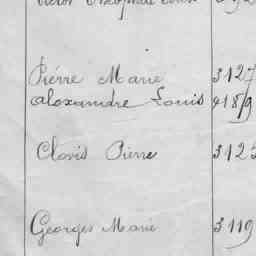 Pierre Marie 3127
Alexandre Louis
Clovis Pierre 312
Georges Marie 3119